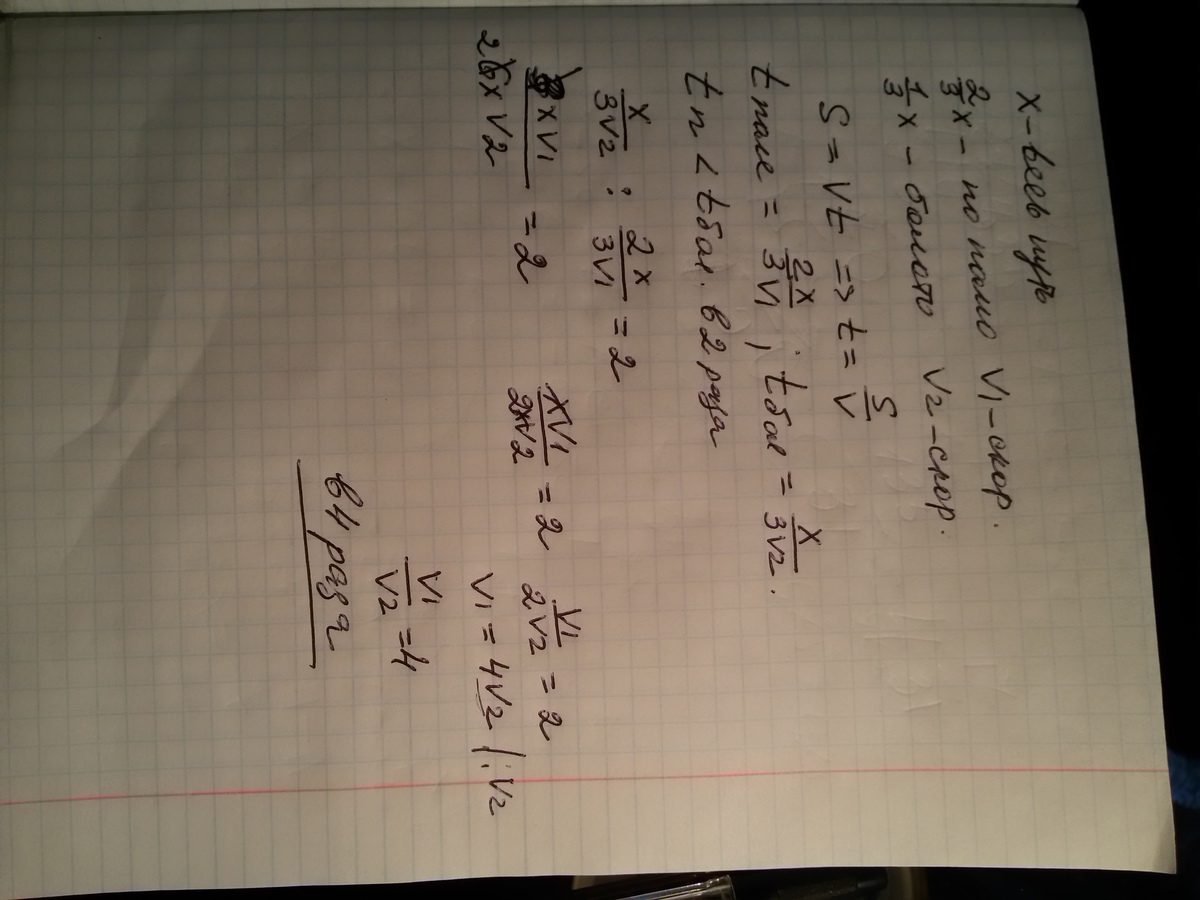 x – весь путь
2/3 x – по полю V1 – скор.
1/3 x – болото V2 – скор.
S = Vt => t = S/V
t поле = 2x/3V1 ; t бол = x/3V2 .
t п < t бол. в 2 раза
x/3V2 : 2x/3V1 = 2
3xV1/6xV2 = 2 xV1/2xV2 = 2 V1/2V2 = 2
V1 = 4V2 |:V2
V1/V2 = 4
в 4 раза